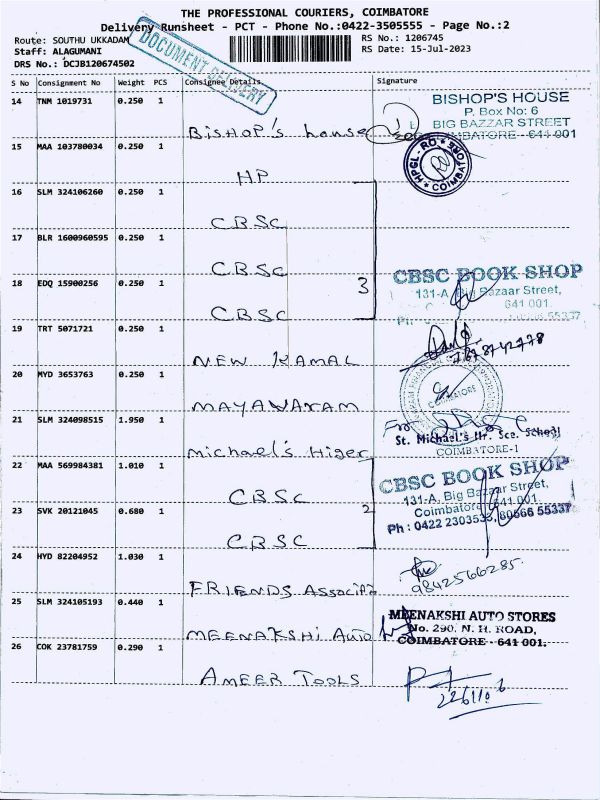 THE PROFESSIONAL COURIERS, COIMBATORE
Delivery Runsheet - PCT - Phone No.:0422-3505555 - Page No.:2
Route: SOUTHU UKKADAM
RS No.: 1206745
Staff: ALAGUMANI
RS Date: 15-Jul-2023
DRS No.: DCJB120674502
DOCUMENT DELIVERY
S No Consignment No Weight PCS Consignee Details Signature
14 TNM 1019731 0.250 1
Bishop's house
BISHOP'S HOUSE
P. Box No: 6
BIG BAZZAR STREET
COIMBATORE - 641 001
15 MAA 103780034 0.250 1
HP
HPGL - RO
COIMBATORE
16 SLM 324106260 0.250 1
CBSC
17 BLR 1600960595 0.250 1
CBSC
18 EDQ 15900256 0.250 1
CBSC
3
CBSC BOOK SHOP
131-A, Big Bazaar Street,
641 001.
55337
19 TRT 5071721 0.250 1
NEW KAMAL
20 MYD 3653763 0.250 1
MAYAWARAM
COIMBATORE
21 SLM 324098515 1.950 1
Michael's Higer
For
St. Michael's Hr. Sec. School
COIMBATORE-1
22 MAA 569984381 1.010 1
CBSC
23 SVK 20121045 0.680 1
CBSC
2
CBSC BOOK SHOP
131-A, Big Bazaar Street,
Coimbatore - 641 001.
Ph : 0422 2303533, 80566 55337
24 HYD 82204952 1.030 1
FRIENDS Associa
9842566285
25 SLM 324105193 0.440 1
MEENAKSHI AUTO
MEENAKSHI AUTO STORES
No. 290, N. H. ROAD,
COIMBATORE - 641 001.
26 COK 23781759 0.290 1
AMEER TOOLS